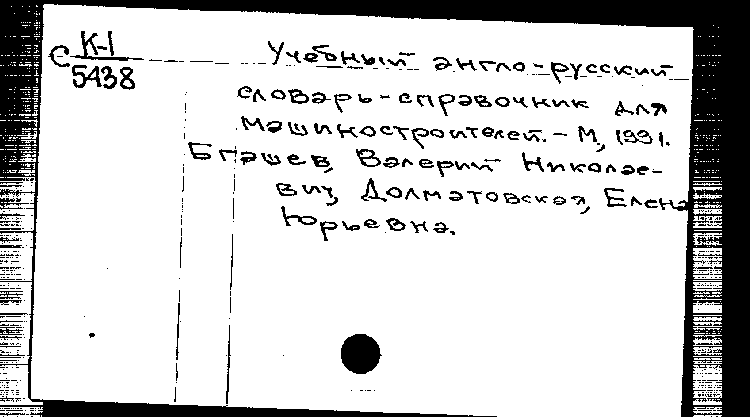 С К-I
5438
Учебный англо-русский
словарь-справочник для
машиностроителей. - М., 1991.
Бгашев, Валерий Николае-
вич, Долматовская, Елена
Юрьевна.